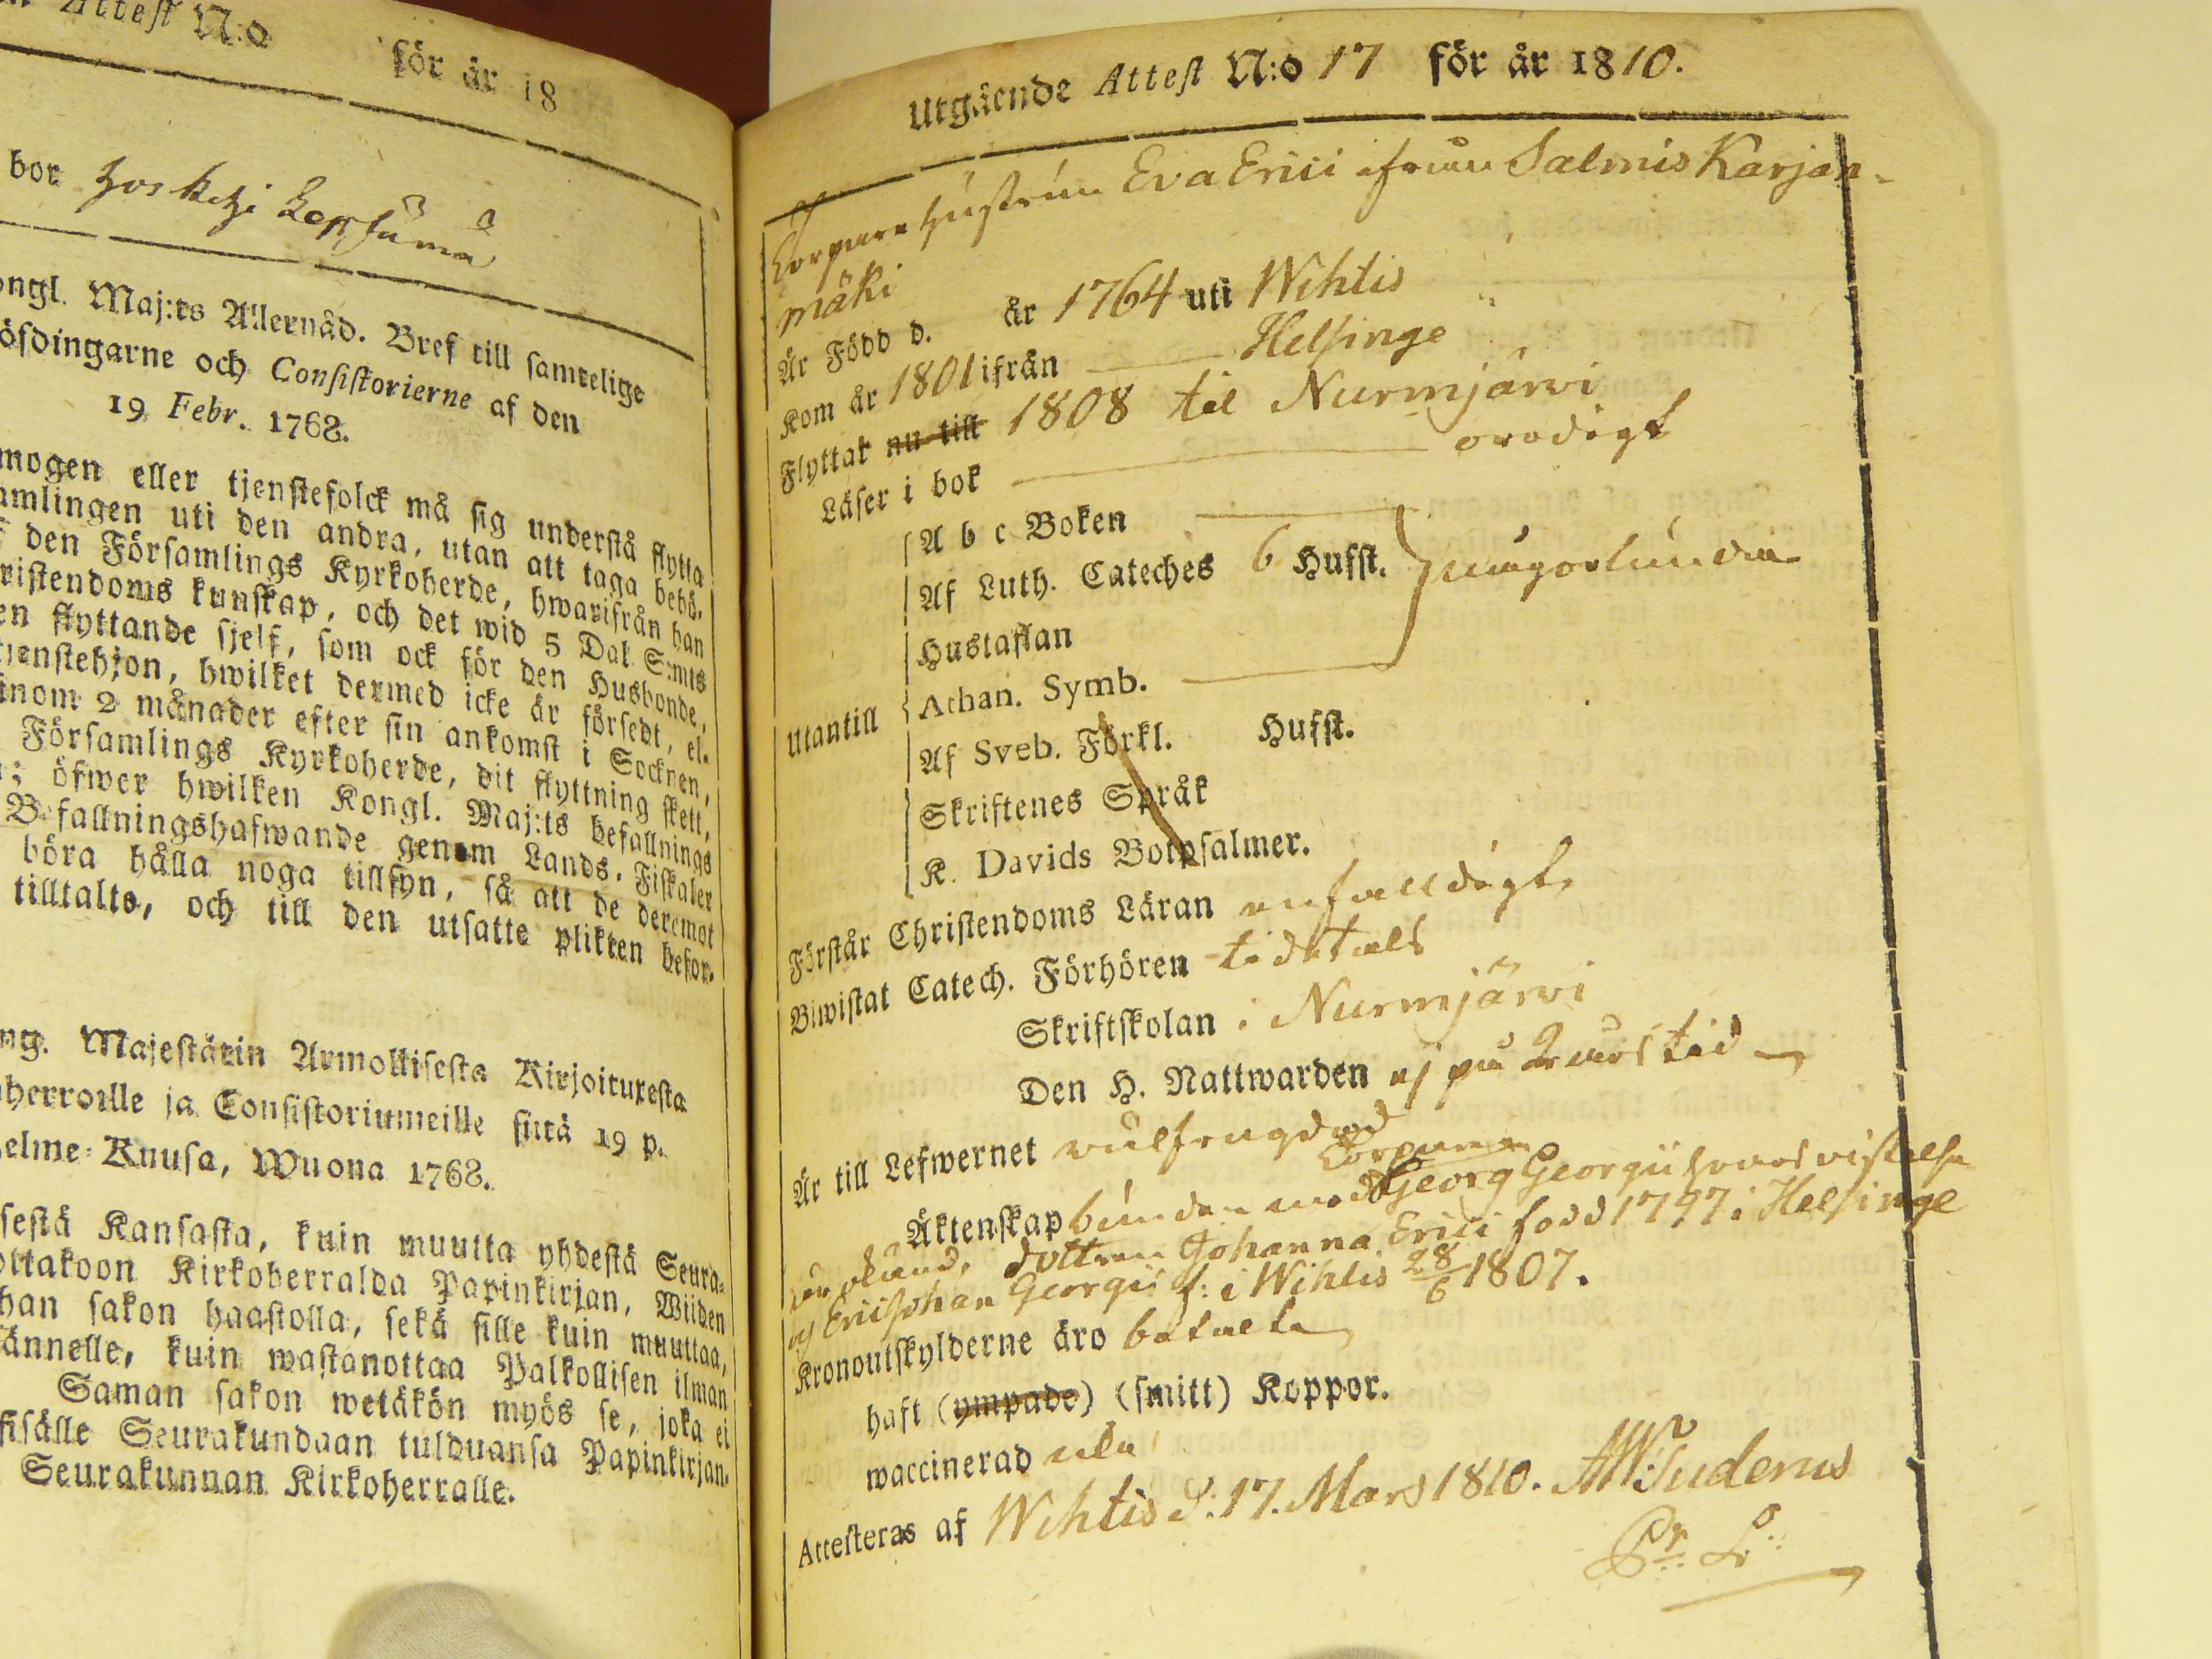 Attest N:o för år 18
bor
ongl. Maj:ts Allernåd. Bref till samtelige
ösdingarne och Consistorierne af den
19 Febr. 1768.
mogen eller tjenstefolck må sig understå flytta
amlingen uti den andra, utan att taga behö-
den Församlings Kyrkoherde, hwarifrån han
ristendoms kunskap, och det wid 5 Dal. S:mts
en flyttande sjelf, som ock för den Husbonde,
tjenstehjon, hwilket dermed icke är försedt, el-
inom 2 månader efter sin ankomst i Socknen,
Församlings Kyrkoherde, dit flyttning skett,
; öfwer hwilken Kongl. Maj:ts befallnings
Befallningshafwande genom Lands-Fiskaler
böra hålla noga tillsyn, så att de deremot
tilltalte, och till den utsatte plikten befor-
ng. Majestätin Armollisesta Kirjoituxesta
herroille ja Consistoriumeille siitä 19 p.
elme-Kuusa, Wuona 1768.
sestä Kansasta, kuin muutta yhdestä Seura-
ottakoon Kirkoherralda Papinkirjan, Wiiden
han sakon haastolla, sekä sille kuin muuttaa,
ännelle, kuin wastanottaa Palkollisen ilman
Saman sakon wetäkön myös se, joka ei
sisälle Seurakundaan tulduansa Papinkirjan-
Seurakunnan Kirkoherralle.
Utgående Attest N:o 17 för år 1810.
Torpare hustrun Eva Erici ifrån Salmis Karjan-
mäki
Är Född d. år 1764 uti Wihtis
Kom år 1801 ifrån Helsinge
Flyttat nu till 1808 til Nurmjärvi
Läser i bok oredigt
A b c Boken
Af Luth. Cateches 6 Hufst. någorlunda
Hustaflan
Athan. Symb.
Utantill
Af Sveb. Förkl. Hufst.
Skriftenes Språk
K. Davids Botpsalmer.
Förstår Christendoms Läran enfalldigt
Biwistat Catech. Förhören tidtals
Skriftskolan i Nurmjärvi
Den H. Nattwarden ej på 2 års tid
Är till Lefwernet wälfrägdad
Torparen
Äktenskap bunden med Georg Georgii hvars vistelse
är okänd, dottren Johanna Erici född 1797 i Helsinge
og Eric Johan Georgii f: i Wihtis 28/6 1807.
Kronoutskylderne äro betalte
haft (ympade) (smitt) Koppor.
waccinerad
Attesteras af Wihtis d: 17. Mars 1810. AW: Tuderus